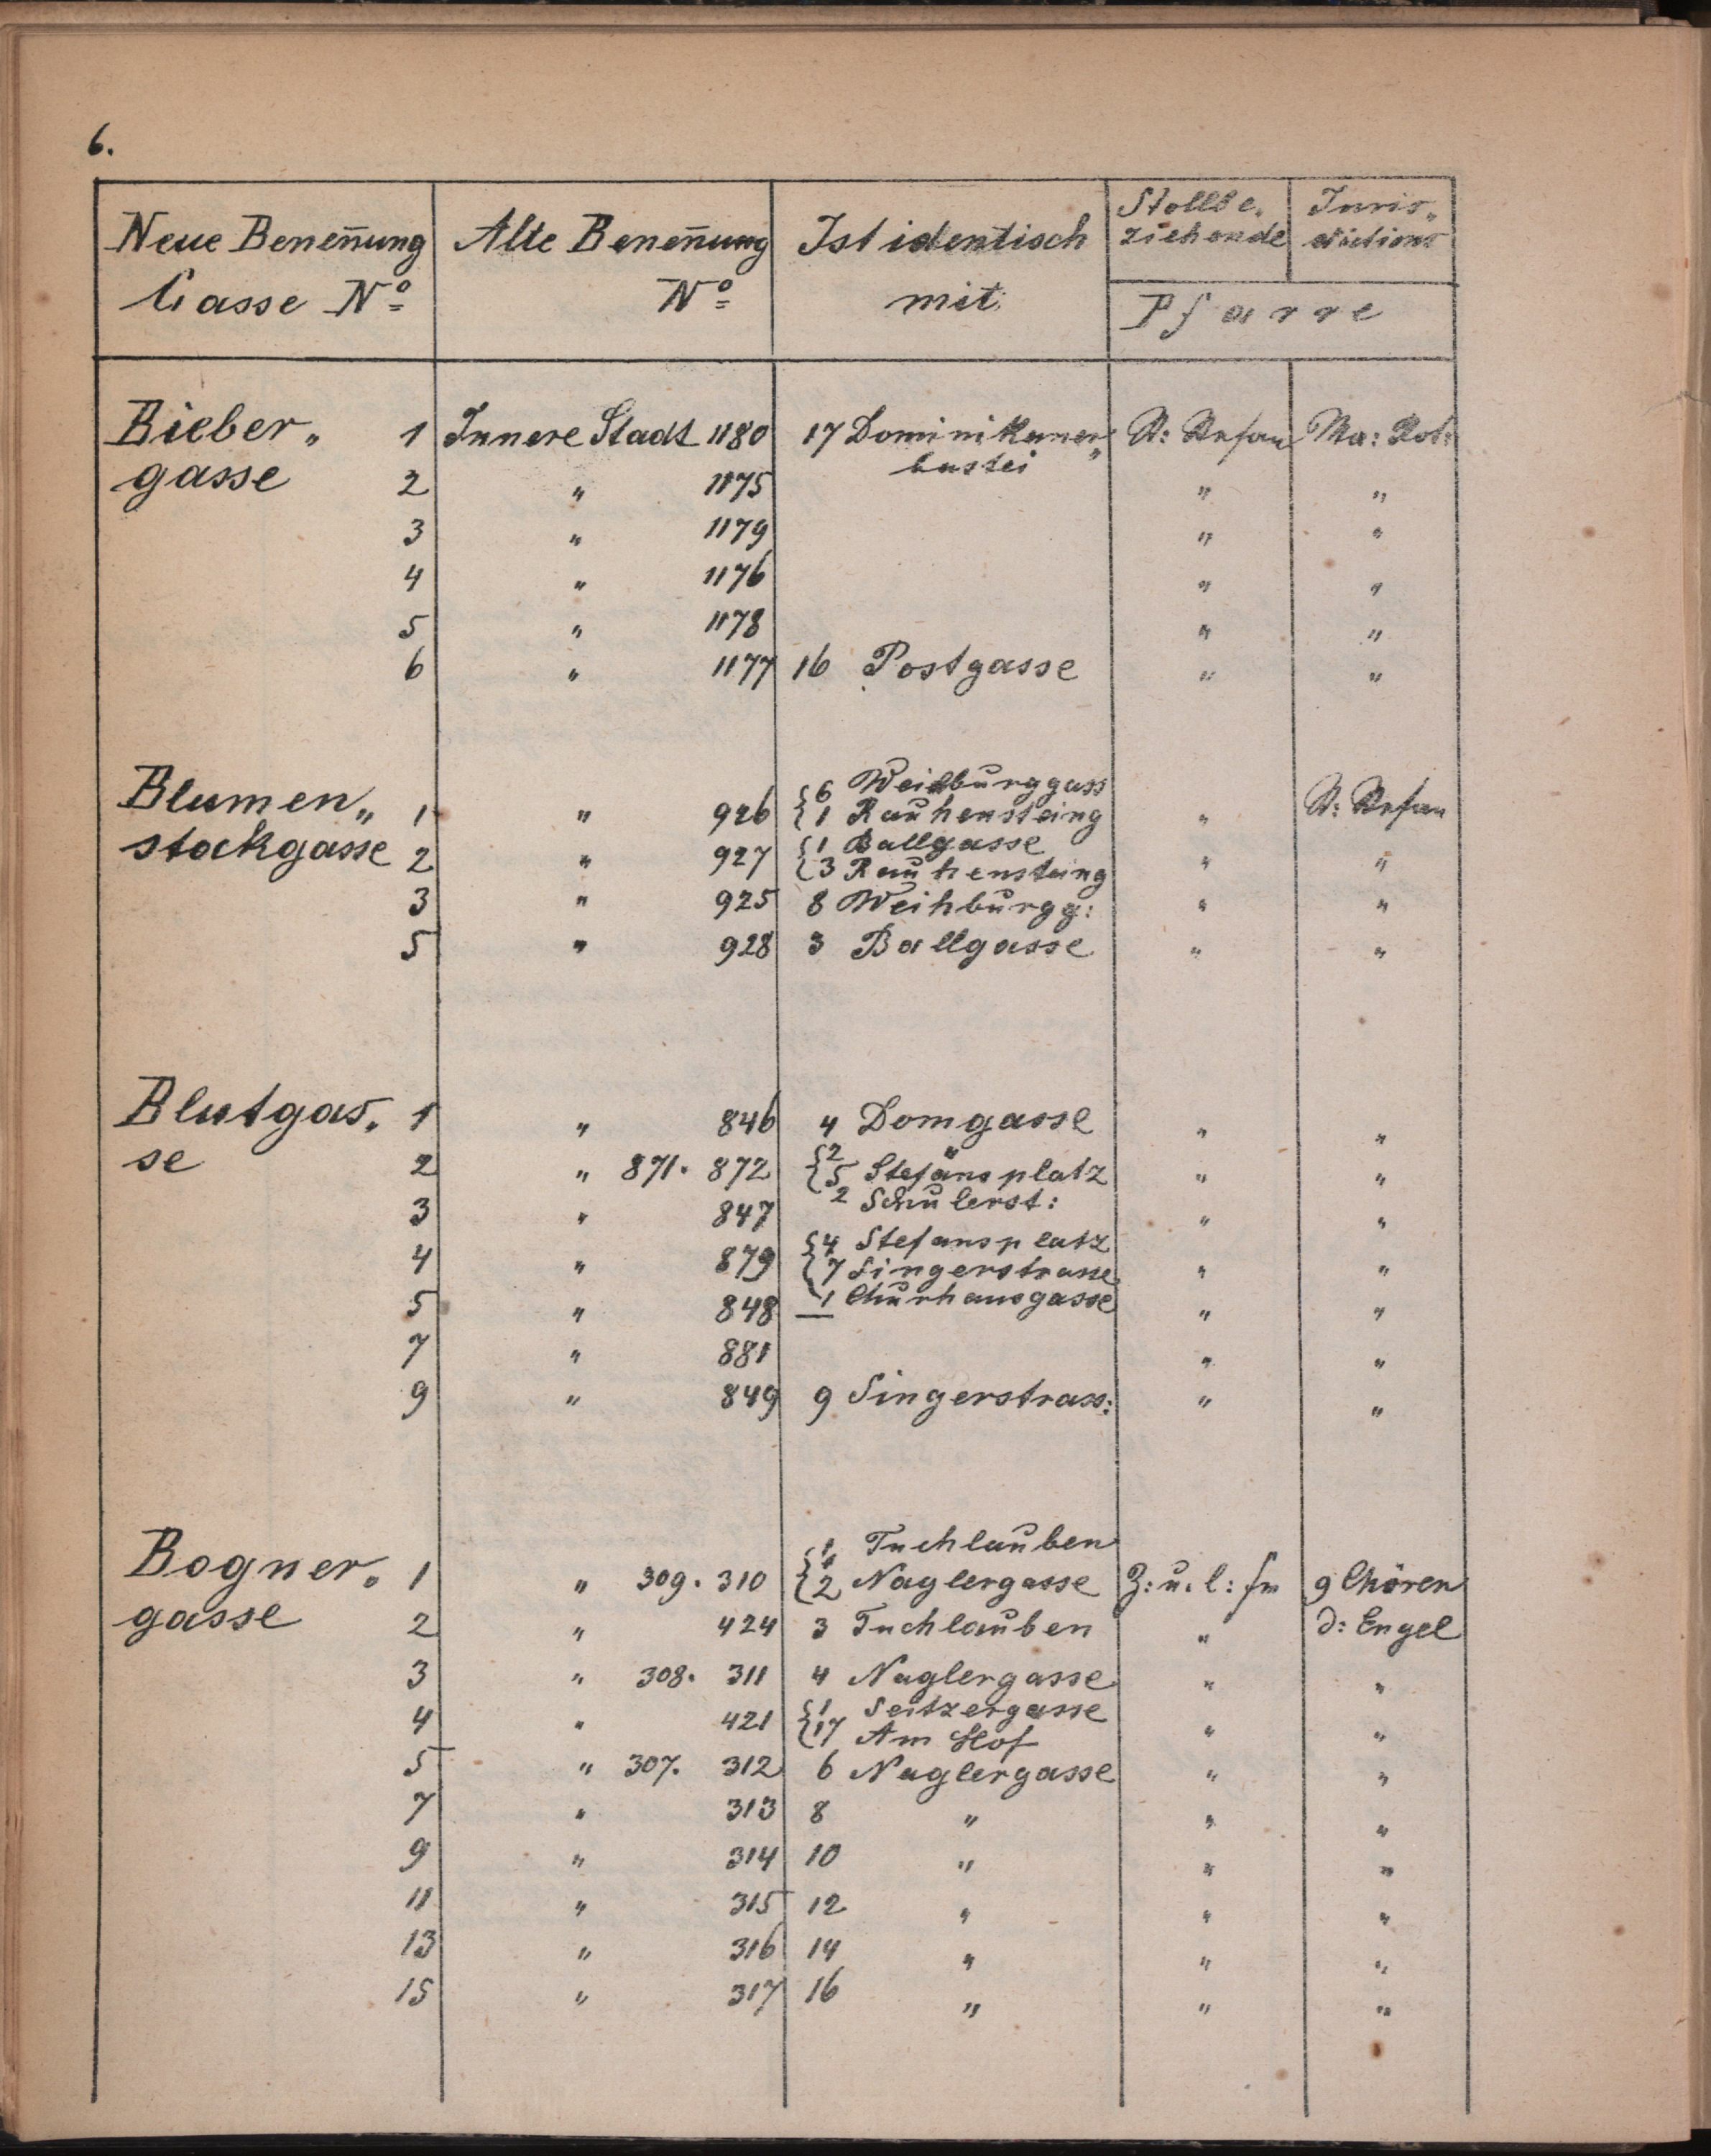 6.
Neue Beneñung Alte Beneñung Ist identisch Stollbe„ Juris„
ziehende dictions
Gasse Nº Nº mit Pfarre
Bieber„ 1 Innere Stadt 1180 17 Dominikaner„ St: Stefan Ma: Rot:
bastei
gasse 2 " 1175 " "
3 " 1179 " "
4 " 1176 " "
5 " 1178 " "
6 " 1177 16 Postgasse " "
{6 Weihburggass
Blumen„ 1 " 926 {1 Rauhensteing " St: Stefan
stockgasse 2 " 927 {1 Ballgasse " "
{3 Rauhensteing
3 " 925 8 Weihburgg: " "
5 " 928 3 Ballgasse " "
Blutgas„ 1 " 846 4 Domgasse " "
se 2 " 871. 872 {2 " " "
{5 Stefansplatz
3 " 847 2 Schulerst: " "
4 " 879 {4 Stefansplatz " "
{7 Singerstrasse
5 " 848 1 Churhausgasse " "
7 " 881 " "
9 " 849 9 Singerstrass: " "
{1 Tuchlauben
Bogner„ 1 " 309. 310 {2 Naglergasse Z: u. l: fr 9 Chören
gasse 2 " 424 3 Tuchlauben " d: Engel
3 " 308. 311 4 Naglergasse " "
4 " 421 {1 Seitzergasse " "
{17 Am Hof
5 " 307. 312 6 Naglergasse " "
7 " 313 8 " " "
9 " 314 10 " " "
11 " 315 12 " " "
13 " 316 14 " " "
15 " 317 16 " " "